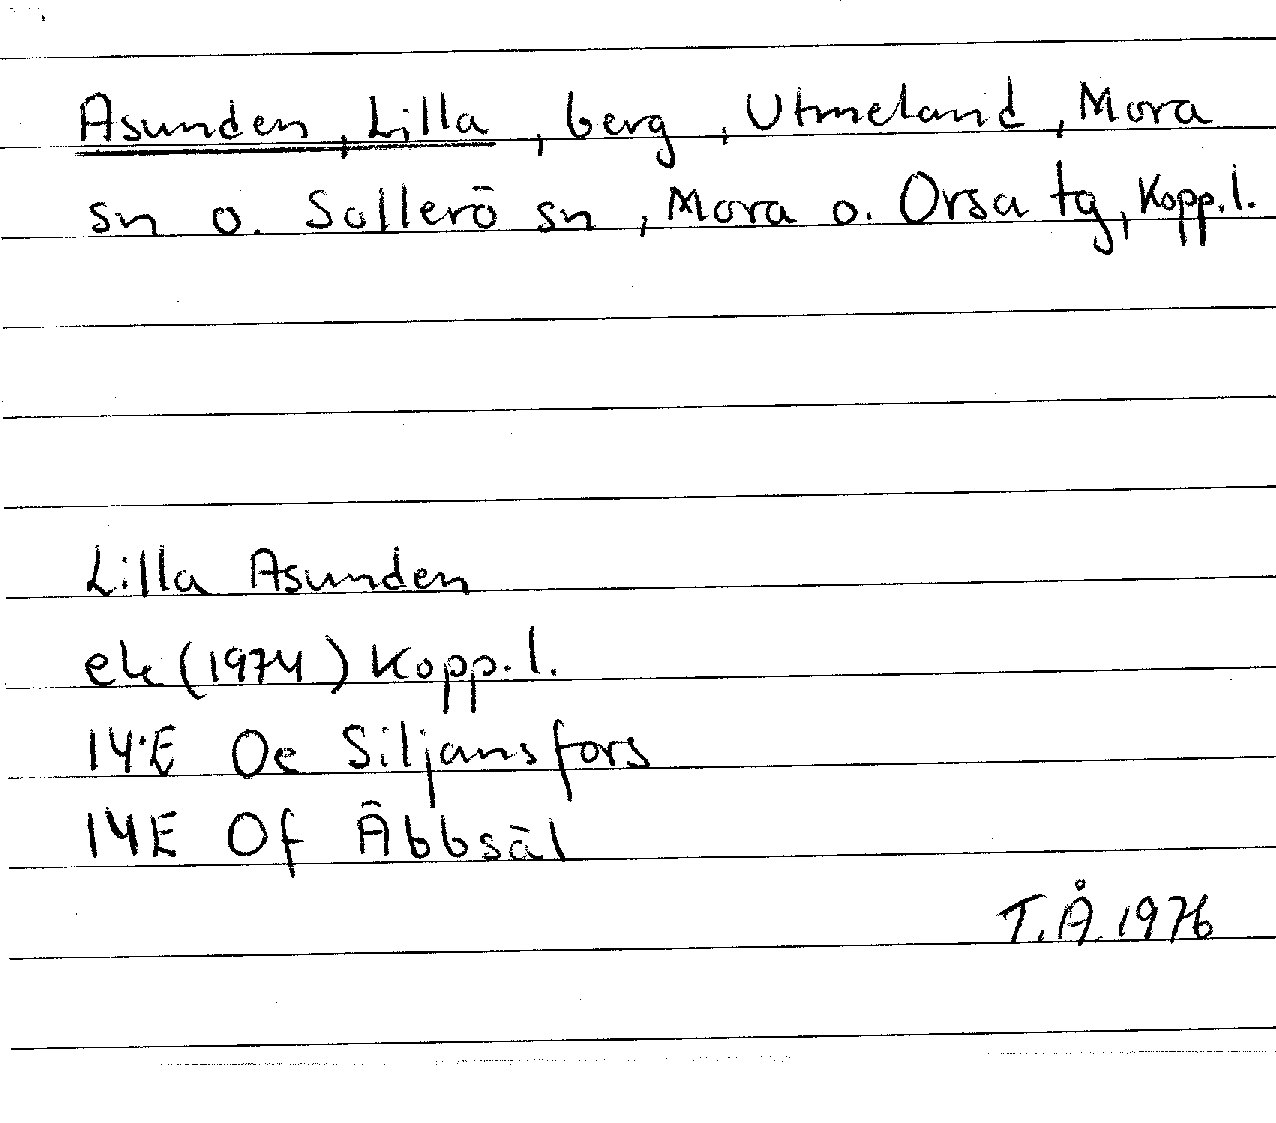 Asunden, Lilla, berg, Utmeland, Mora
sn o. Sollerö sn, Mora o. Orsa tg, Kopp.l.
Lilla Asunden
ek (1974) Kopp.l.
14E Oe Siljansfors
14E Of Äbbsäl
T.Å. 1976